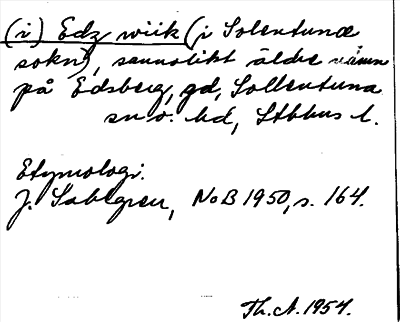 (i) Edz wiik (i Solentunæ
sokn), sannolikt äldre namn
på Edsberg, gd, Sollentuna
sn o. hd, Sthlms l.
Etymologi.
J. Sahlgren, NoB 1950, s. 164.
Th. A. 1954.